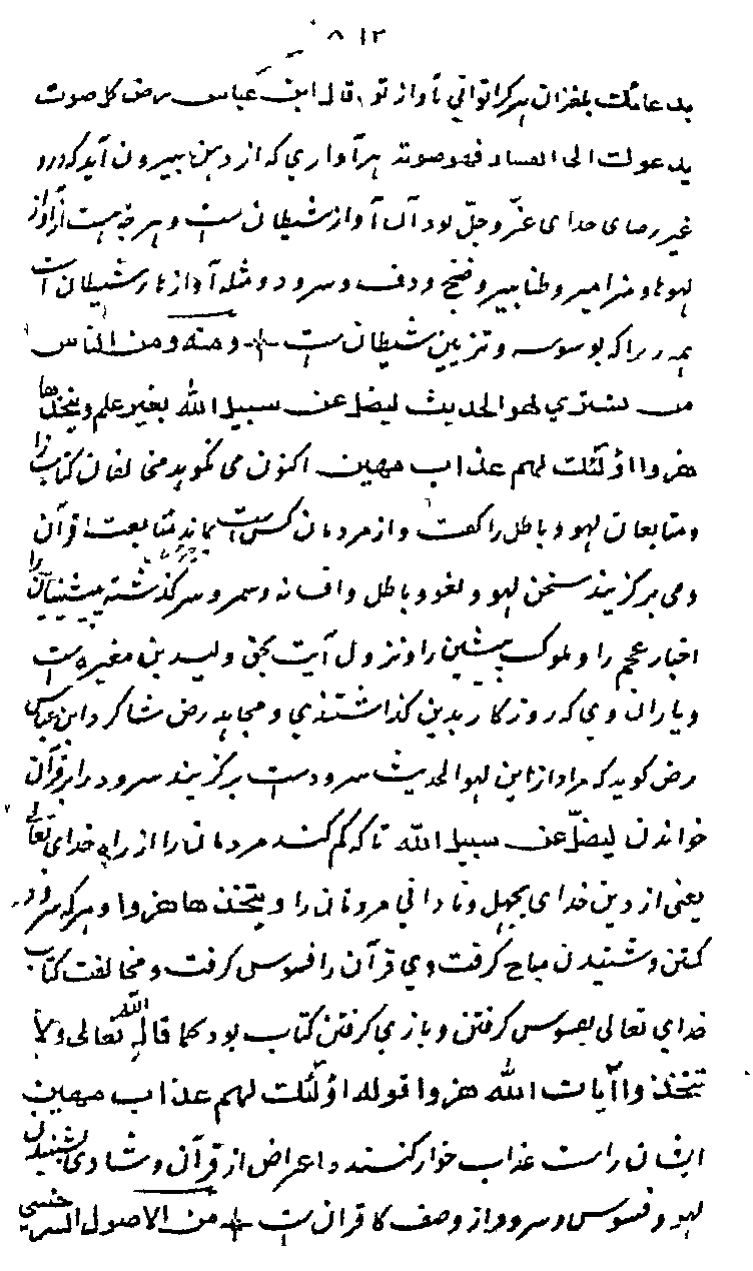 ٨١٢
بدعائت بلغزان هر کرا توانی بآواز تو قال ابن عباس رض کل صوت
یدعوک الی الفساد فهو صوته هر آوازی که از دهن بیرون آید که درو
غیر رضای خدای عزّ و جلّ بود آن آواز شیطان ست و هرچه هست از آواز
لهوها و مزامیر و طنابیر و صنج و دف و سرود و مثله آوازهای شیطان است
همه را که بوسوسه و تزیین شیطان ست ومنه ومن الناس
من یشتری لهو الحدیث لیضل عن سبیل الله بغیر علم ویتخذها
هزوا اولئک لهم عذاب مهین اکنون می کوید مخالفان کتاب را
ومتابعان لهو و باطل را کفت و از مردمان کس است بماند متابعت قرآن
ومی برکزیند سخن لهو و لغو و باطل و افسانه وسمر و سرکذشته پیشینیان را
اخبار عجم را و ملوک پیشین را و نزول آیت بحق ولید بن مغیره است
و یاران وی که روزکار بدین کذاشتندی و مجاهد رض شاکرد ابن عباس
رض کوید که مراد از این لهو الحدیث سرودست برکزیند سرود را بر قرآن
خواندن لیضلّ عن سبیل الله تا که کم کند مردمان را از راه خدای تعالی
یعنی از دین خدای بجهل و نادانی مردمان را ویتخذها هزوا و هرکه سرود
کفتن و شنیدن مباح کرفت وی قرآن را فسوس کرفت و مخالفت کتاب
خدای تعالی بفسوس کرفتن و بازی کرفتن کتاب بود کما قال الله تعالی ولا
تتخذوا آیات الله هزوا قوله اولئک لهم عذاب مهین
ایشان راست عذاب خوار کننده و اعراض از قرآن و شادی بشنیدن
لهو و فسوس و سرود از وصف کافران ست من الاصول